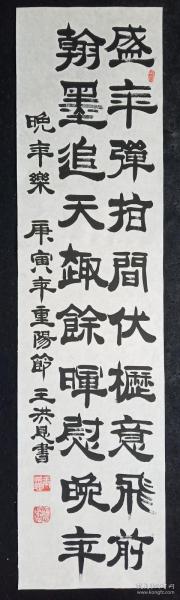 盛年彈指間伏櫪意飛前
翰墨追天趣餘暉慰晚年
晚年樂 庚寅年重陽節王洪恩書